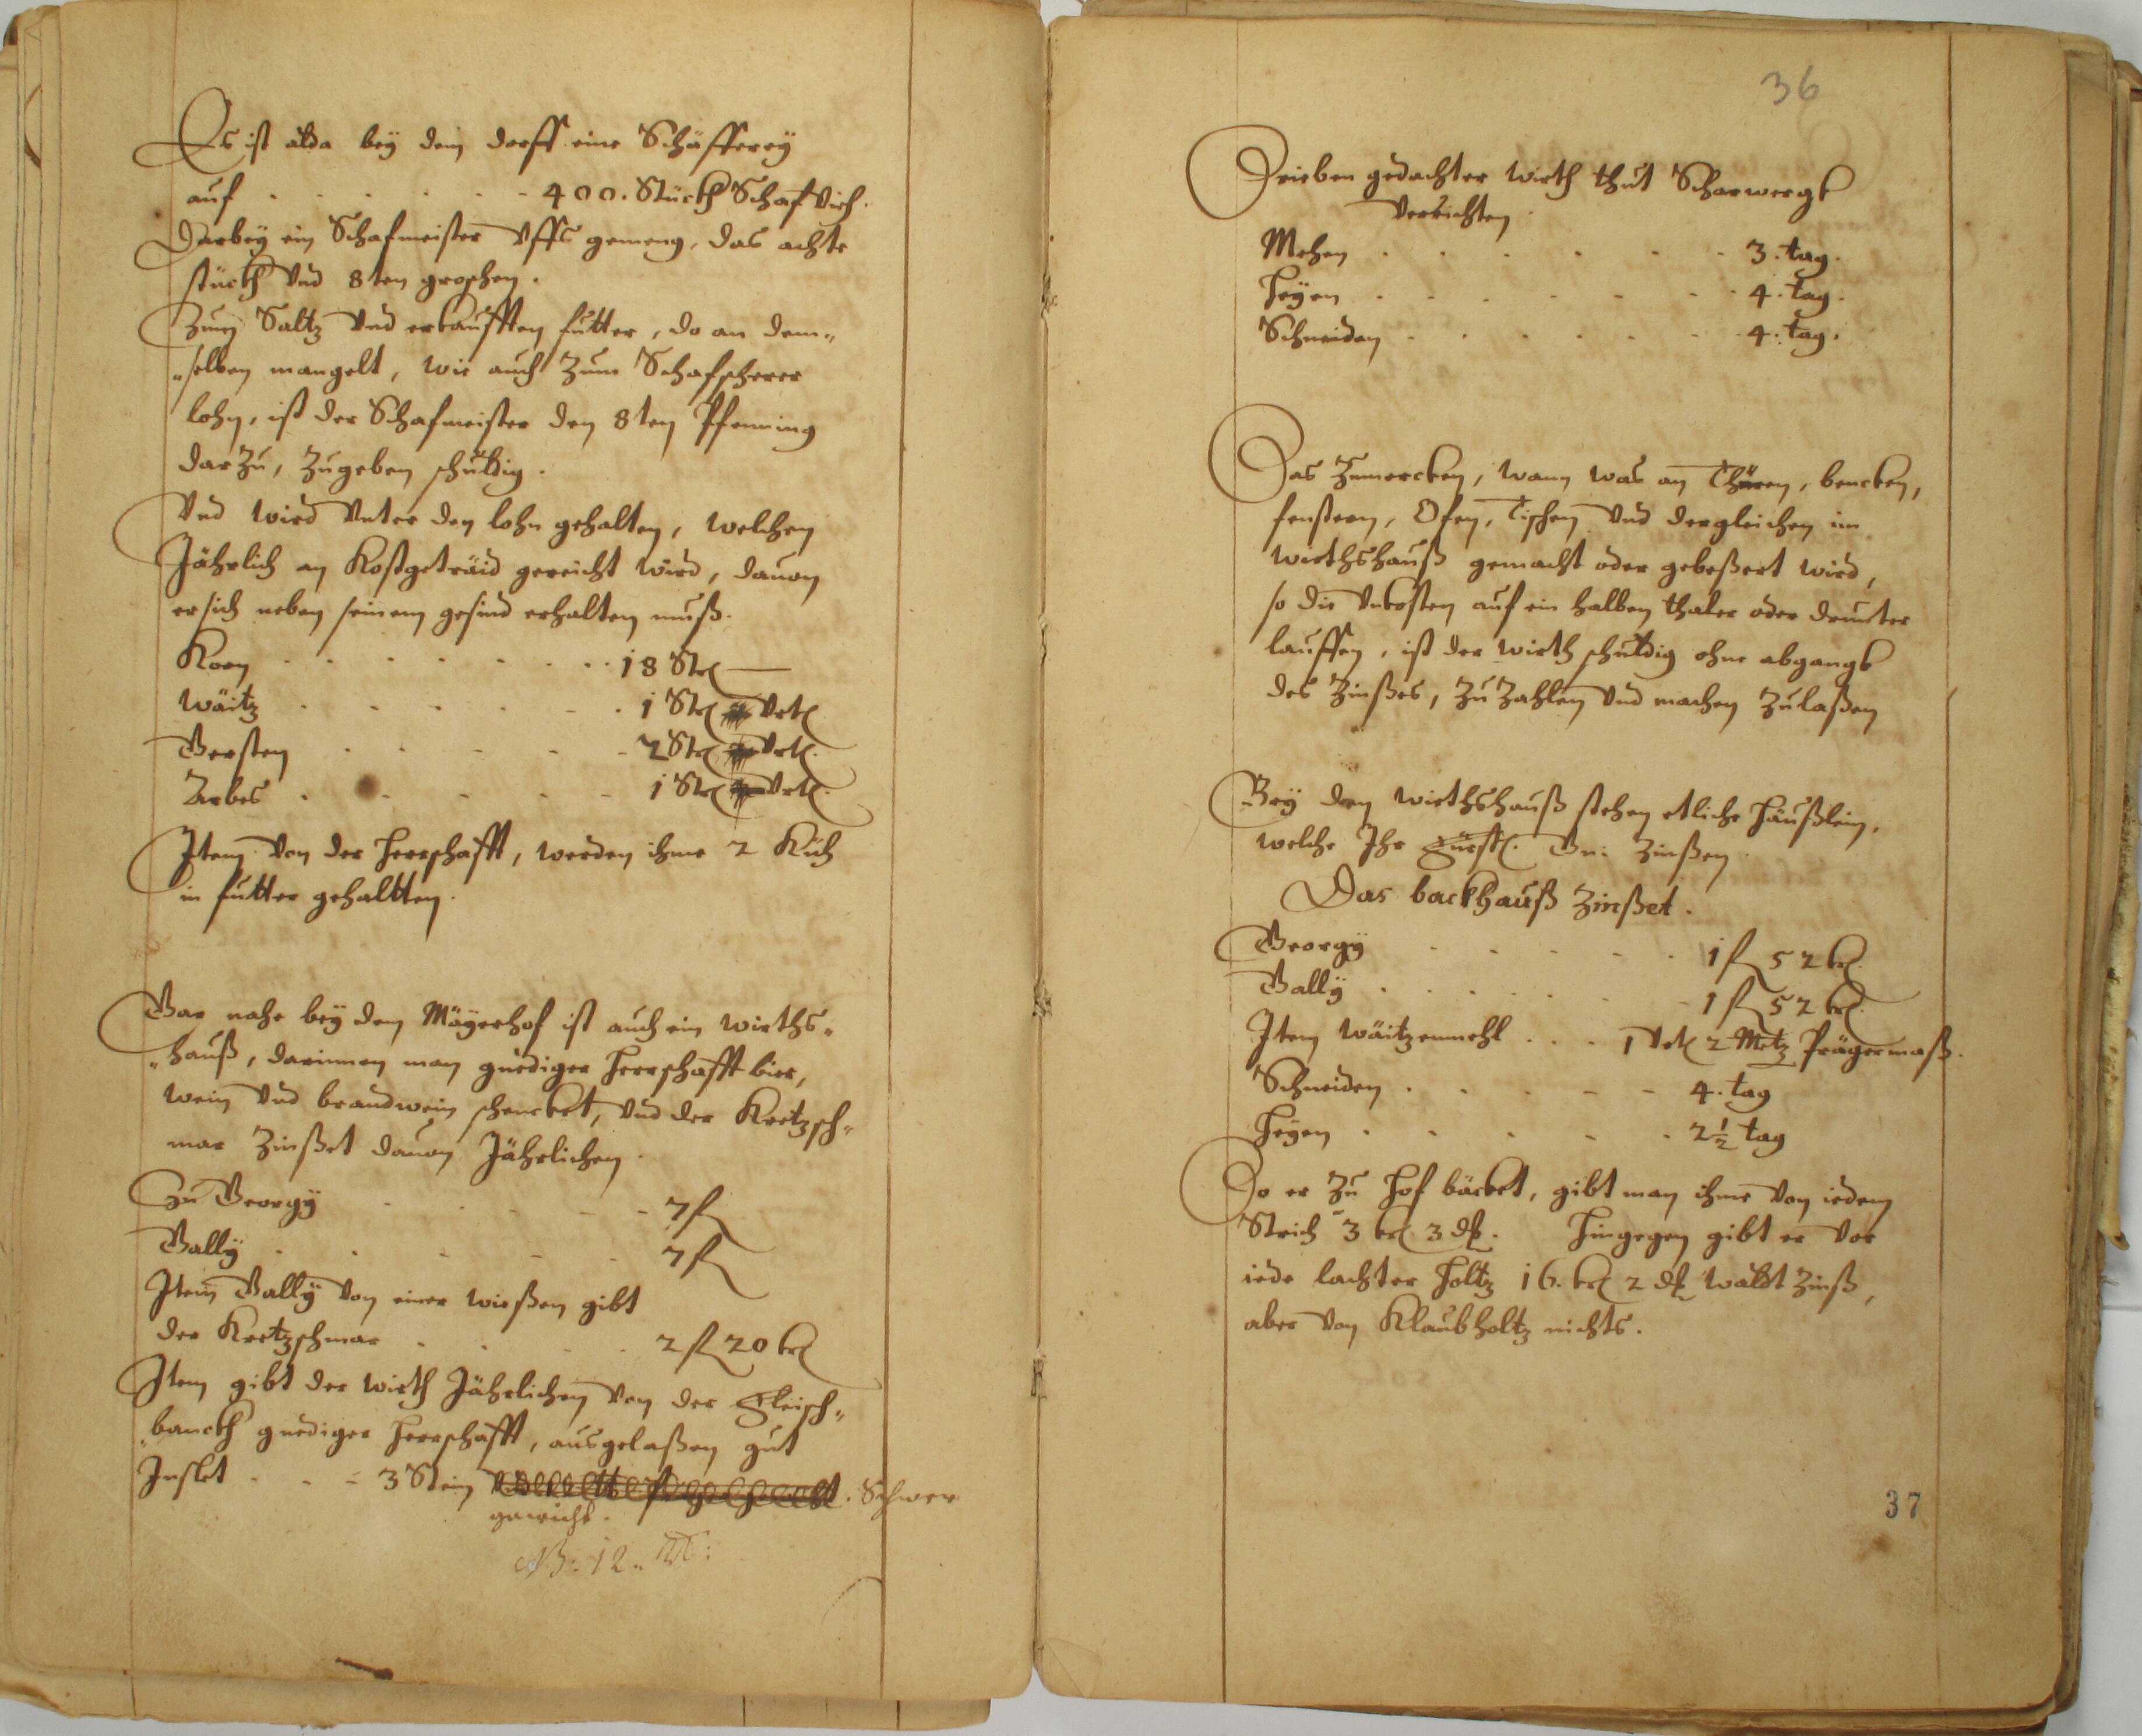 Es ist alda bey dem dorff eine Schäfferey
auf - - - - - - 400. Stückh Schaf Vieh.
Darbey ein Schafmeister Vffs gemeng, das achte
stückh Vnd 8ten groschen.
Zum Saltz Vnd erkaufften futter, do an dem„
„selben mangelt, wie auch Zum Schafscherer
lohn, ist der Schafmeister den 8ten Pfenning
darZu, Zugeben schuldig.
Vnd wird Vnter den lohn gehalten, welchen
Jährlich an Kostgetraid gereicht wird, dauon
er sich neben seinem gesind erhalten muß.
Korn - - - - - - - 18 Str
Wäitz - - - - - - 1 Str Vrtl
Gersten - - - - - 2 Str Vrtl.
Arbes - - - - - - 1 Str Vrtl.
Item Von der Herrschafft, werden ihme 2 Küh
in futter gehaltten.
Gar nahe bey dem Mäyerhof ist auch ein wirths„
„hauß, darinnen man gnediger Herrschafft bier,
wein Vnd brandwein schencket, Vnd der Kretzsch„
mar Zinßet dauon Jährlichen.
Zu Georgy - - - - 7 fl
Gally - - - - - 7 fl
Item Gally Von einer wießen gibt
der Kretzschmar - - - - 2 fl 20 kr
Item gibt der wirth Jährlichen Von der Fleisch„
„banckh gnediger Herrschafft, ausgelaßen gut
Inslet - - - 3 Stein . Schwer
gewicht.
NB: 12.
36
Drieben gedachter wirth thut Scharwergk
Verrichten.
Mehen - - - - - - 3. tag.
Heyen - - - - - - 4. tag.
Schneiden - - - - - - 4. tag.
Das Zumercken, wann was an Thüren, bencken,
fenstern, Ofen, Tischen Vnd dergleichen im
wirthshauß gemacht oder gebeßert wird,
so die Vnkosten auf ein halben thaler oder drunter
lauffen, ist der wirth schuldig ohne abgangk
des Zinßes, Zu Zahlen Vnd machen Zulaßen
Bey dem wirthshauß stehen etliche Häußlein,
welche Ihr Fürstl. Gn: Zinßen.
Das backhauß Zinßet.
Georgy - - - - - 1 fl 52 kr.
Gally - - - - - - 1 fl 52 kr.
Item Wäitzenmehl - - - 1 Vrtl 2 Metz Prägermaß.
Schneiden - - - - - 4. tag
Heyen - - - - - 2 1/2 tag
Do er Zu Hof bäcket, gibt man ihme Von iedem
Strich 3 kr 3 d. Hingegen gibt er Vor
iede lachter Holtz 16. kr 2 d waldt Zinß,
aber Von Klaubholtz nichts.
37